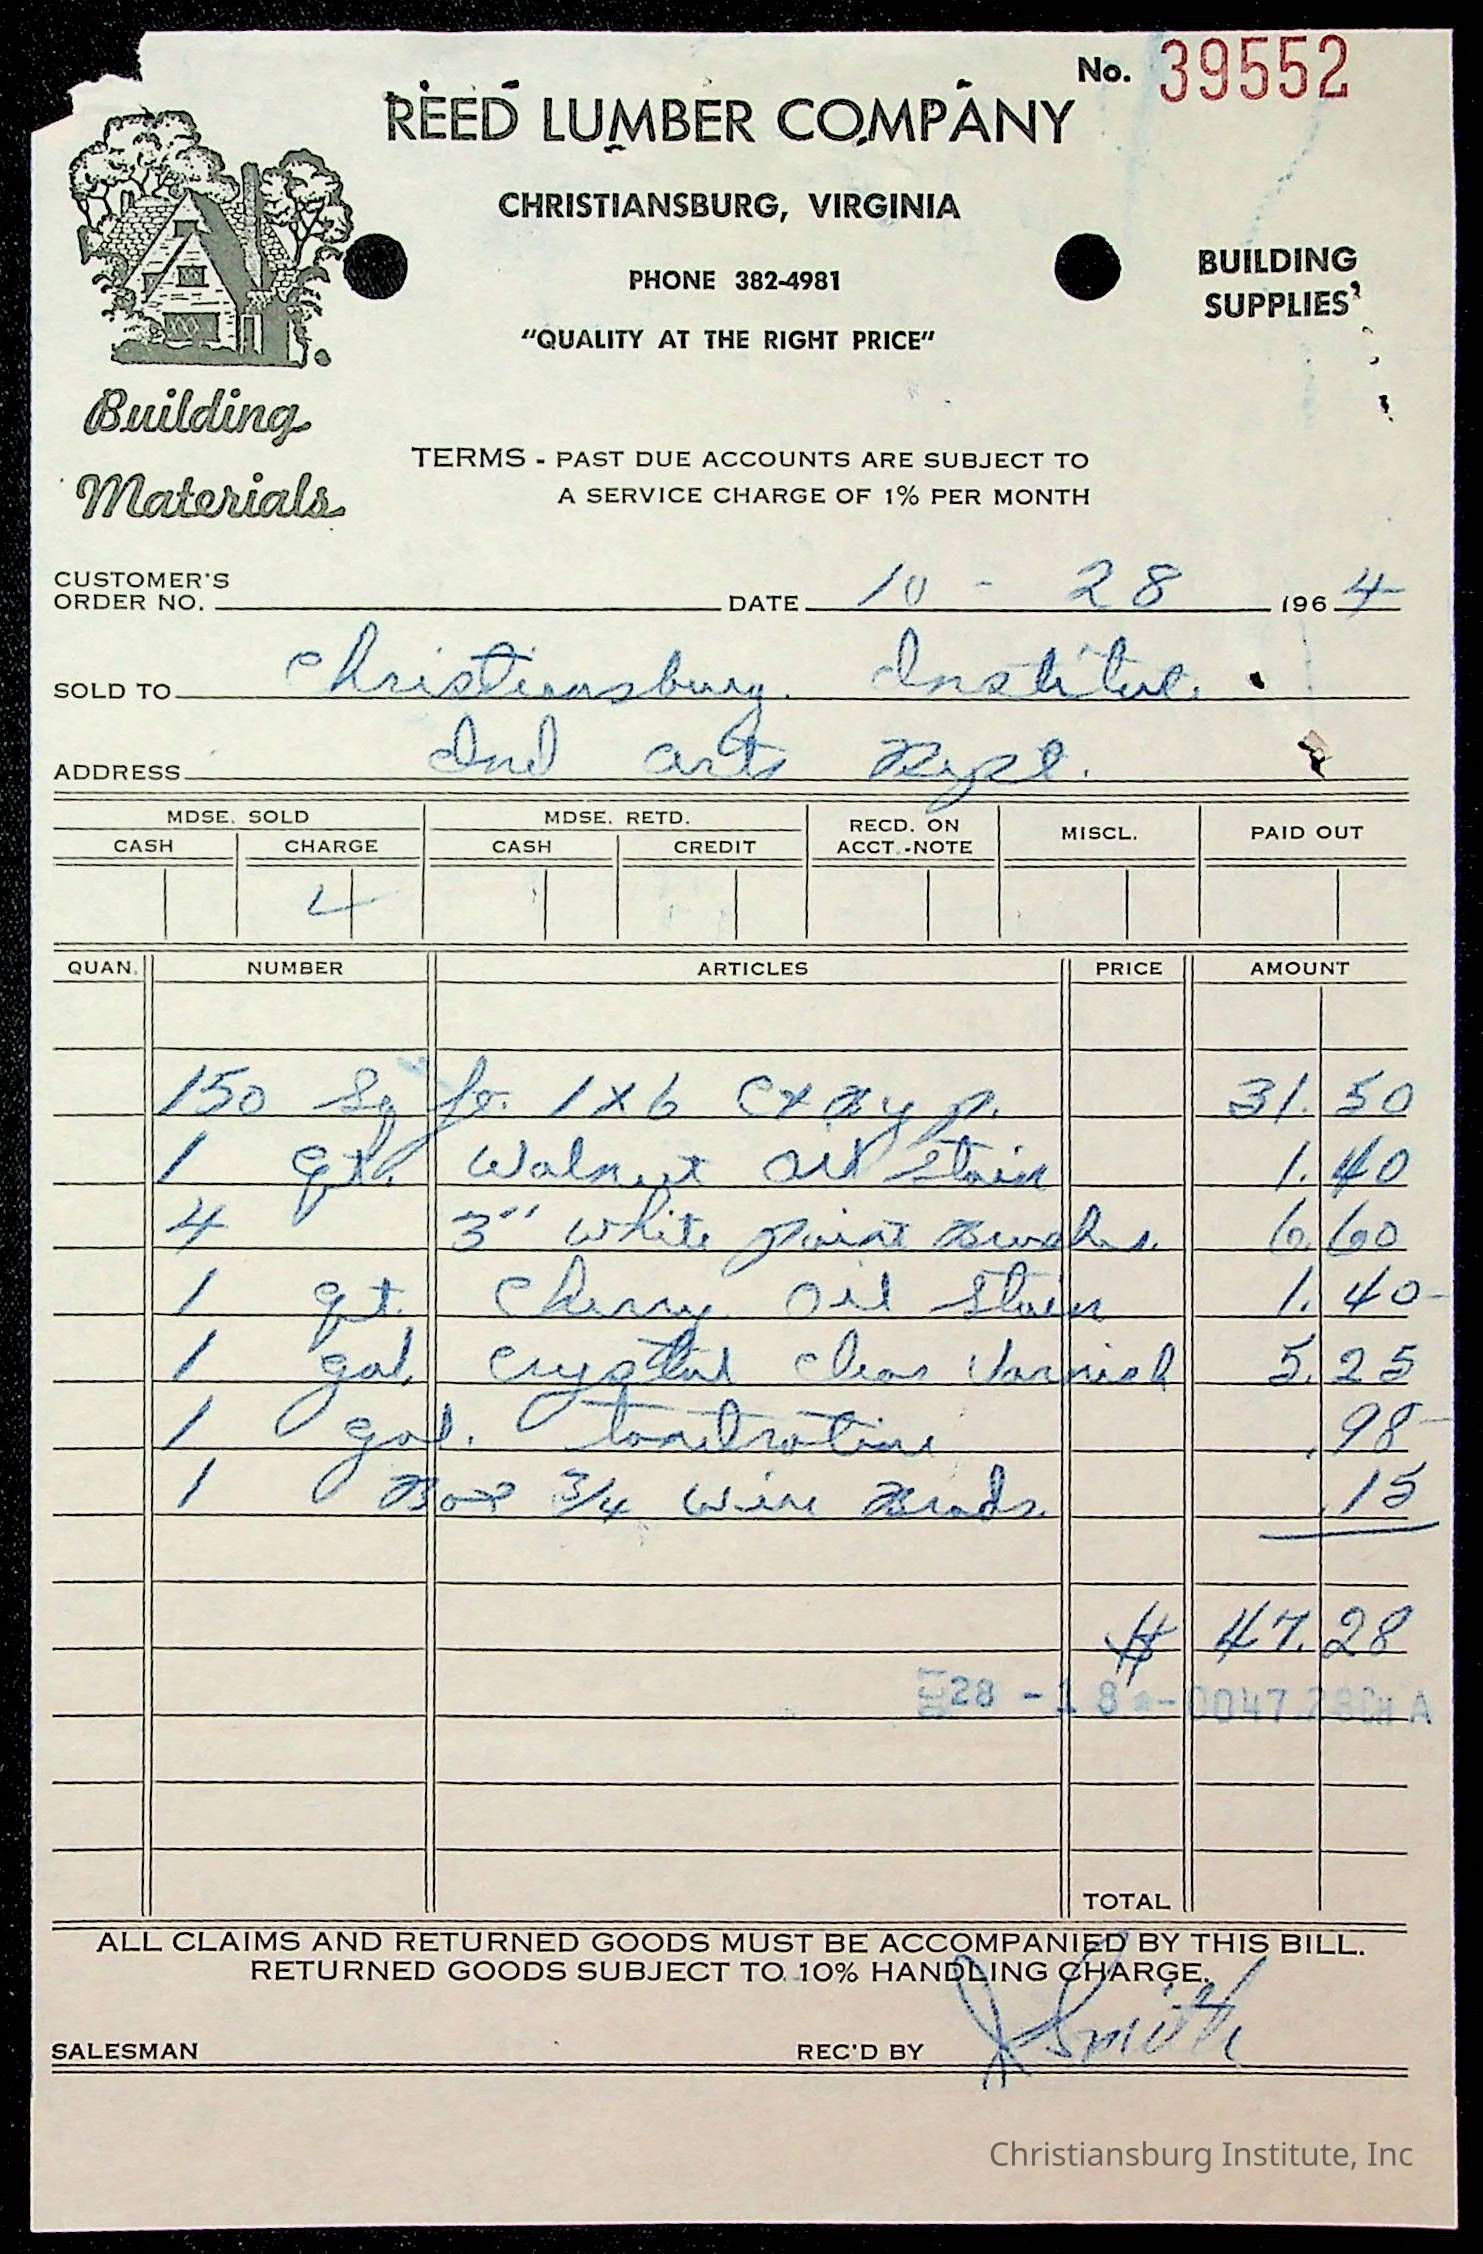 No. 39552
REED LUMBER COMPANY
CHRISTIANSBURG, VIRGINIA
PHONE 382-4981
"QUALITY AT THE RIGHT PRICE"
BUILDING
SUPPLIES
Building
Materials
TERMS - PAST DUE ACCOUNTS ARE SUBJECT TO
A SERVICE CHARGE OF 1% PER MONTH
CUSTOMER'S
ORDER NO. DATE 10 - 28 1964
SOLD TO Christiansburg Institute
ADDRESS Ind arts Dept.
MDSE. SOLD MDSE. RETD. RECD. ON ACCT.-NOTE MISCL. PAID OUT
CASH CHARGE CASH CREDIT
QUAN. NUMBER ARTICLES PRICE AMOUNT
150 Sq ft. 1x6 31.50
1 qt. Walnut Oil Stain 1.40
4 3" White paint Brushes 6.60
1 qt. Cherry Oil Stain 1.40
1 gal. Crystal Clear Varnish 5.25
1 gal. .98
1 Box 3/4 Wire Brads .15
$ 47.28
28 - 18
TOTAL
ALL CLAIMS AND RETURNED GOODS MUST BE ACCOMPANIED BY THIS BILL.
RETURNED GOODS SUBJECT TO 10% HANDLING CHARGE.
SALESMAN REC'D BY J Smith
Christiansburg Institute, Inc